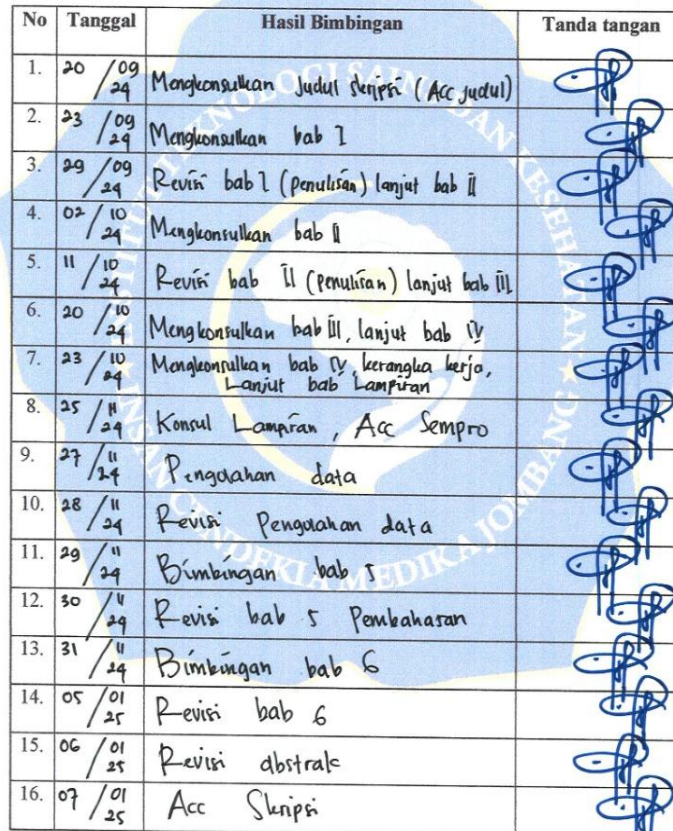 No Tanggal Hasil Bimbingan Tanda tangan
1. 20/09 24 Mengkonsulkan Judul skripsi (Acc judul)
2. 23/09 24 Mengkonsulkan bab I
3. 29/09 24 Revisi bab I (penulisan) lanjut bab II
4. 02/10 24 Mengkonsulkan bab II
5. 11/10 24 Revisi bab II (penulisan) lanjut bab III
6. 20/10 24 Mengkonsulkan bab III, lanjut bab IV
7. 23/10 24 Mengkonsulkan bab IV, kerangka kerja,
Lanjut bab Lampiran
8. 25/11 24 Konsul Lampiran, Acc Sempro
9. 27/11 24 Pengolahan data
10. 28/11 24 Revisi Pengolahan data
11. 29/11 24 Bimbingan bab 5
12. 30/11 24 Revisi bab 5 Pembahasan
13. 31/11 24 Bimbingan bab 6
14. 05/01 25 Revisi bab 6
15. 06/01 25 Revisi abstrak
16. 07/01 25 Acc Skripsi
INSTITUT TEKNOLOGI SAINS DAN KESEHATAN
INSAN CENDEKIA MEDIKA JOMBANG